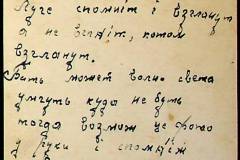 Луче спомніт і взглянут
я не встіт, потом
взглянут.
Быть может волно света
умчуть куда не буть
тогда возмож це фото
у руки і спомнёж